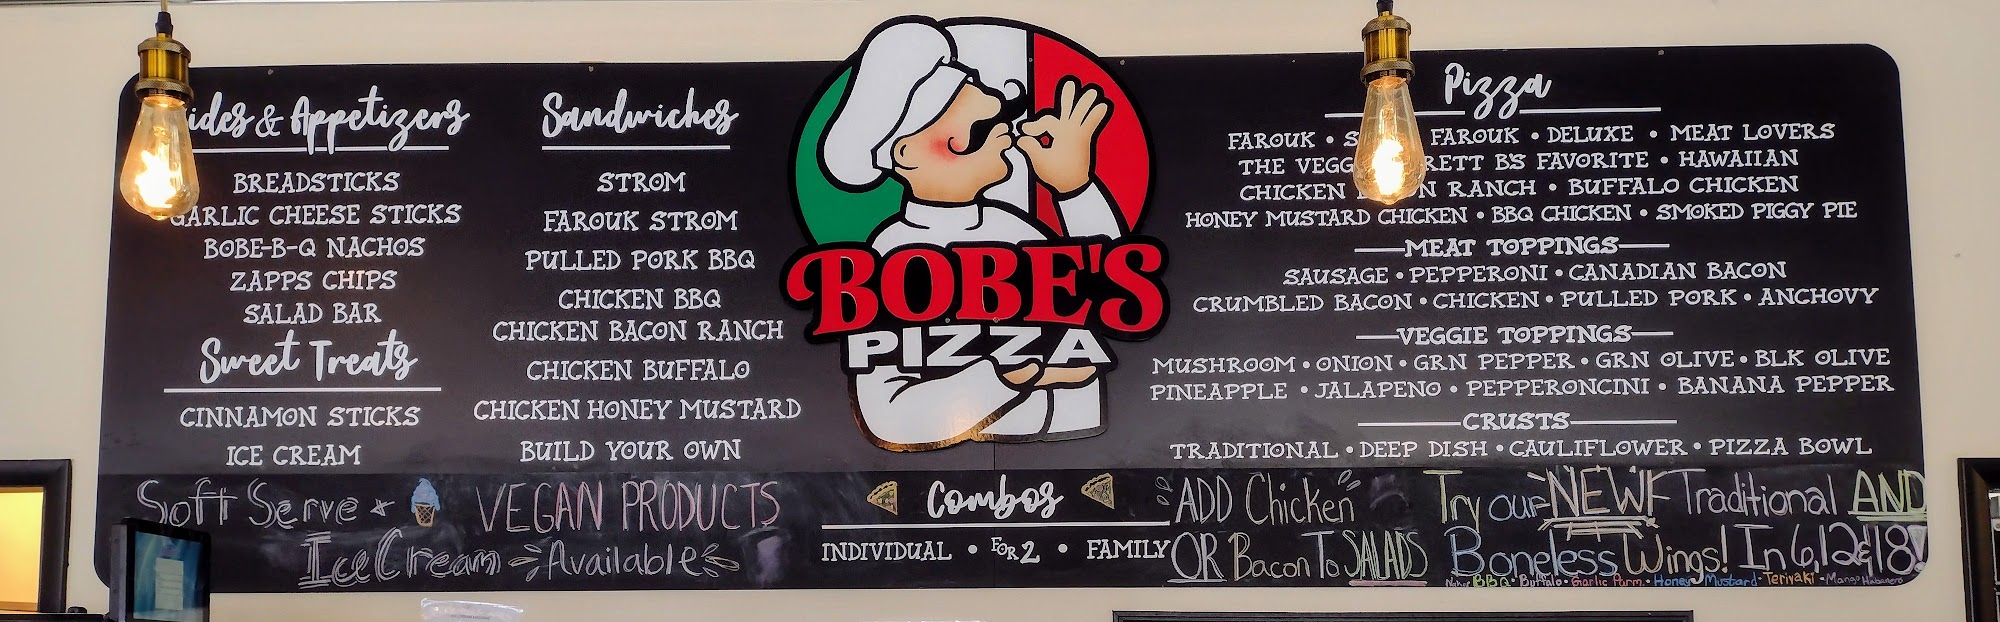 ides & Appetizers
BREADSTICKS
GARLIC CHEESE STICKS
BOBE-B-Q NACHOS
ZAPPS CHIPS
SALAD BAR
Sweet Treats
CINNAMON STICKS
ICE CREAM
Sandwiches
STROM
FAROUK STROM
PULLED PORK BBQ
CHICKEN BBQ
CHICKEN BACON RANCH
CHICKEN BUFFALO
CHICKEN HONEY MUSTARD
BUILD YOUR OWN
BOBE'S
PIZZA
Pizza
FAROUK • S FAROUK • DELUXE • MEAT LOVERS
THE VEGG RETT B'S FAVORITE • HAWAIIAN
CHICKEN N RANCH • BUFFALO CHICKEN
HONEY MUSTARD CHICKEN • BBQ CHICKEN • SMOKED PIGGY PIE
MEAT TOPPINGS
SAUSAGE • PEPPERONI • CANADIAN BACON
CRUMBLED BACON • CHICKEN • PULLED PORK • ANCHOVY
VEGGIE TOPPINGS
MUSHROOM • ONION • GRN PEPPER • GRN OLIVE • BLK OLIVE
PINEAPPLE • JALAPENO • PEPPERONCINI • BANANA PEPPER
CRUSTS
TRADITIONAL • DEEP DISH • CAULIFLOWER • PIZZA BOWL
Soft Serve
Ice Cream
VEGAN PRODUCTS
Available
Combos
INDIVIDUAL • FOR 2 • FAMILY
ADD Chicken
OR Bacon To SALADS
Try our NEW! Traditional AND
Boneless Wings! In 6, 12 & 18!
BBQ • Buffalo • Garlic Parm • Honey Mustard • Teriyaki • Mango Habanero